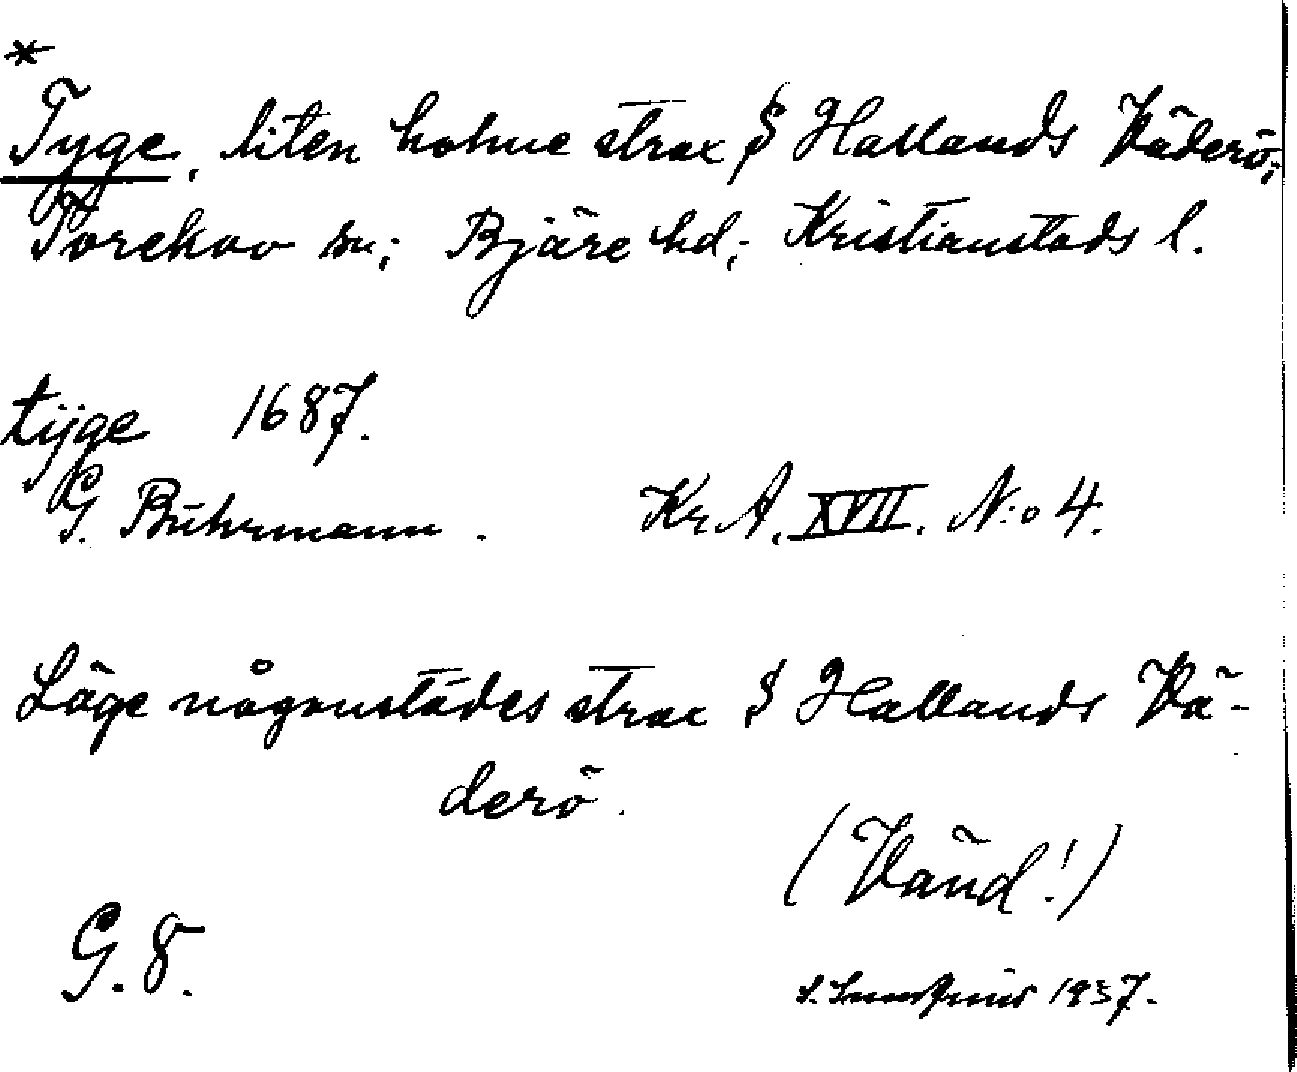 *
Tyge, liten holme strax S Hallands Väderö;
Torekov sn; Bjäre hd; Kristianstads l.
tijge 1687.
G. Buhrmann. Kr. A. XVII. N:o 4.
Läge någonstädes strax S Hallands Vä-
derö.
(Vänd!)
G. 8.
1937.